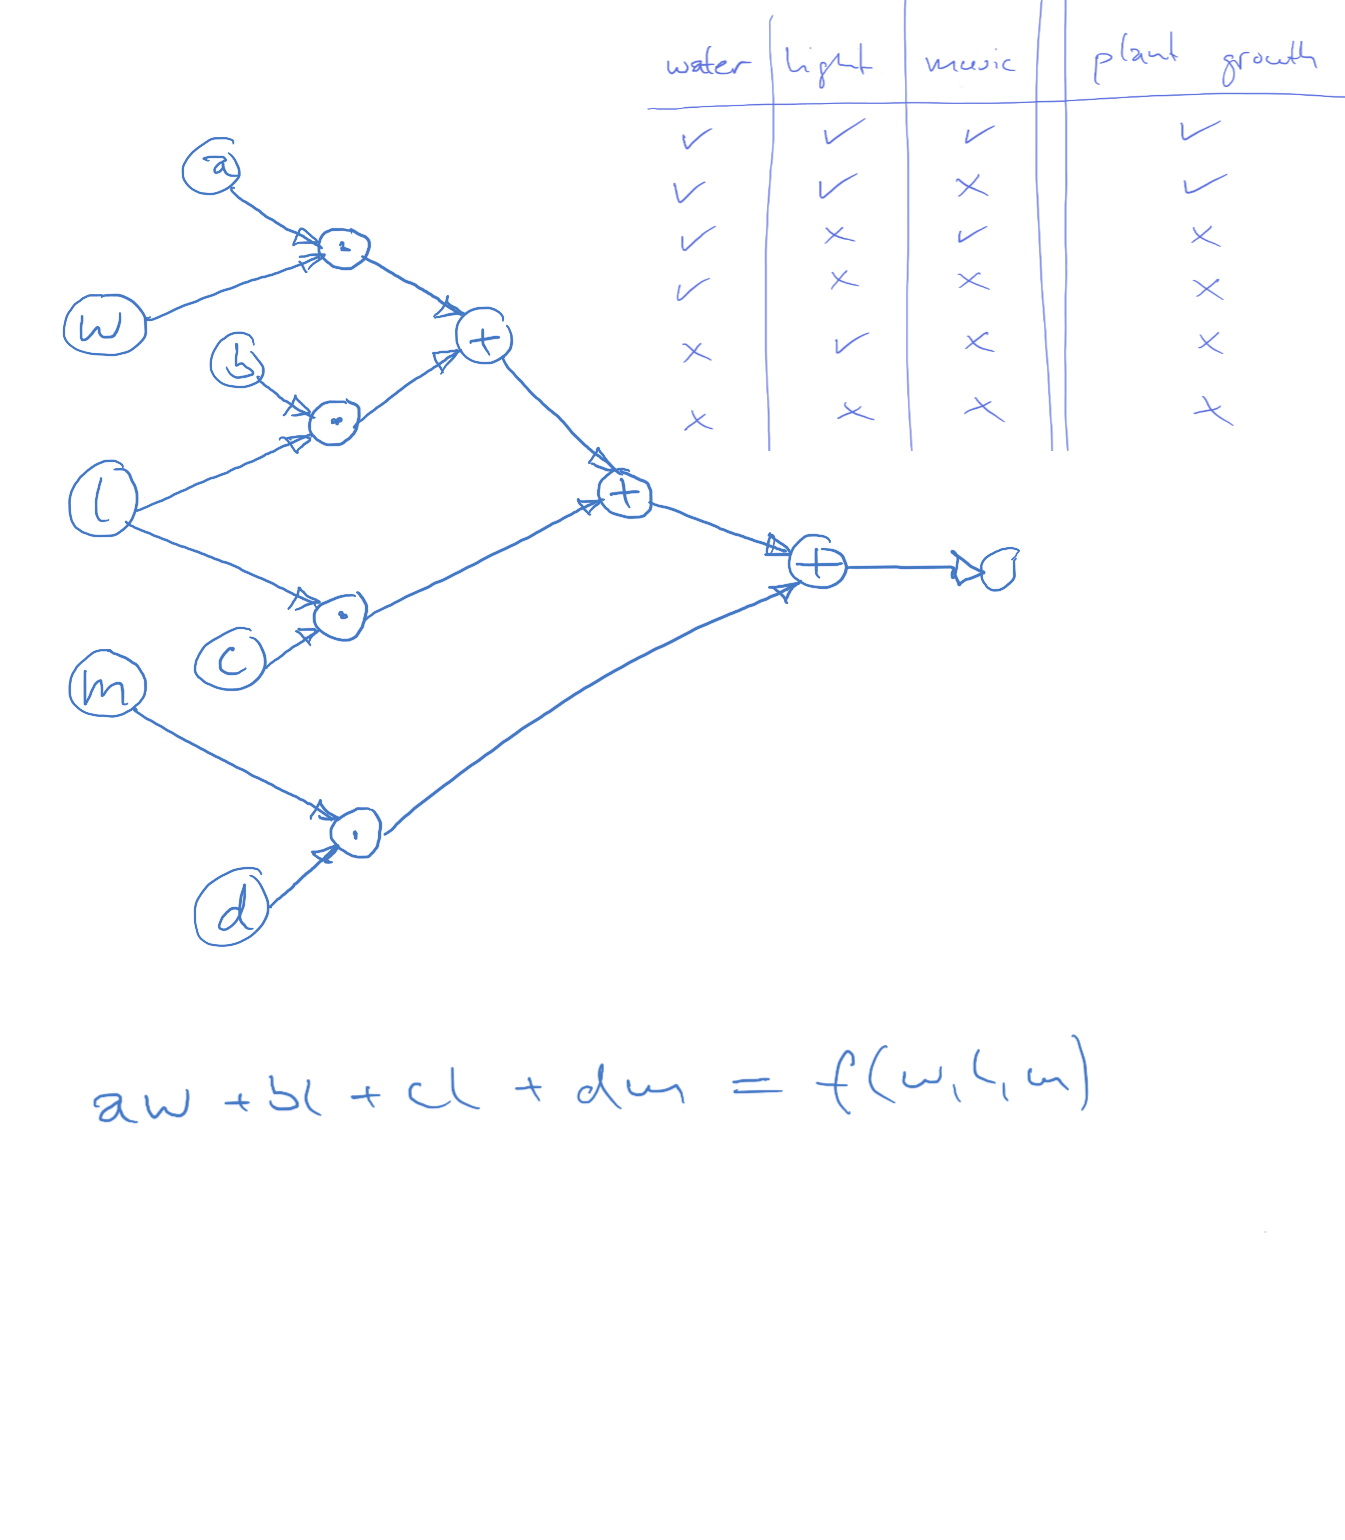 water light music plant growth
✓ ✓ ✓ ✓
✓ ✓ × ✓
✓ × ✓ ×
✓ × × ×
× ✓ × ×
× × × ×
a
·
w
+
b
·
l
+
+
·
c
m
·
d
aw + bl + cl + dm = f(w, l, m)